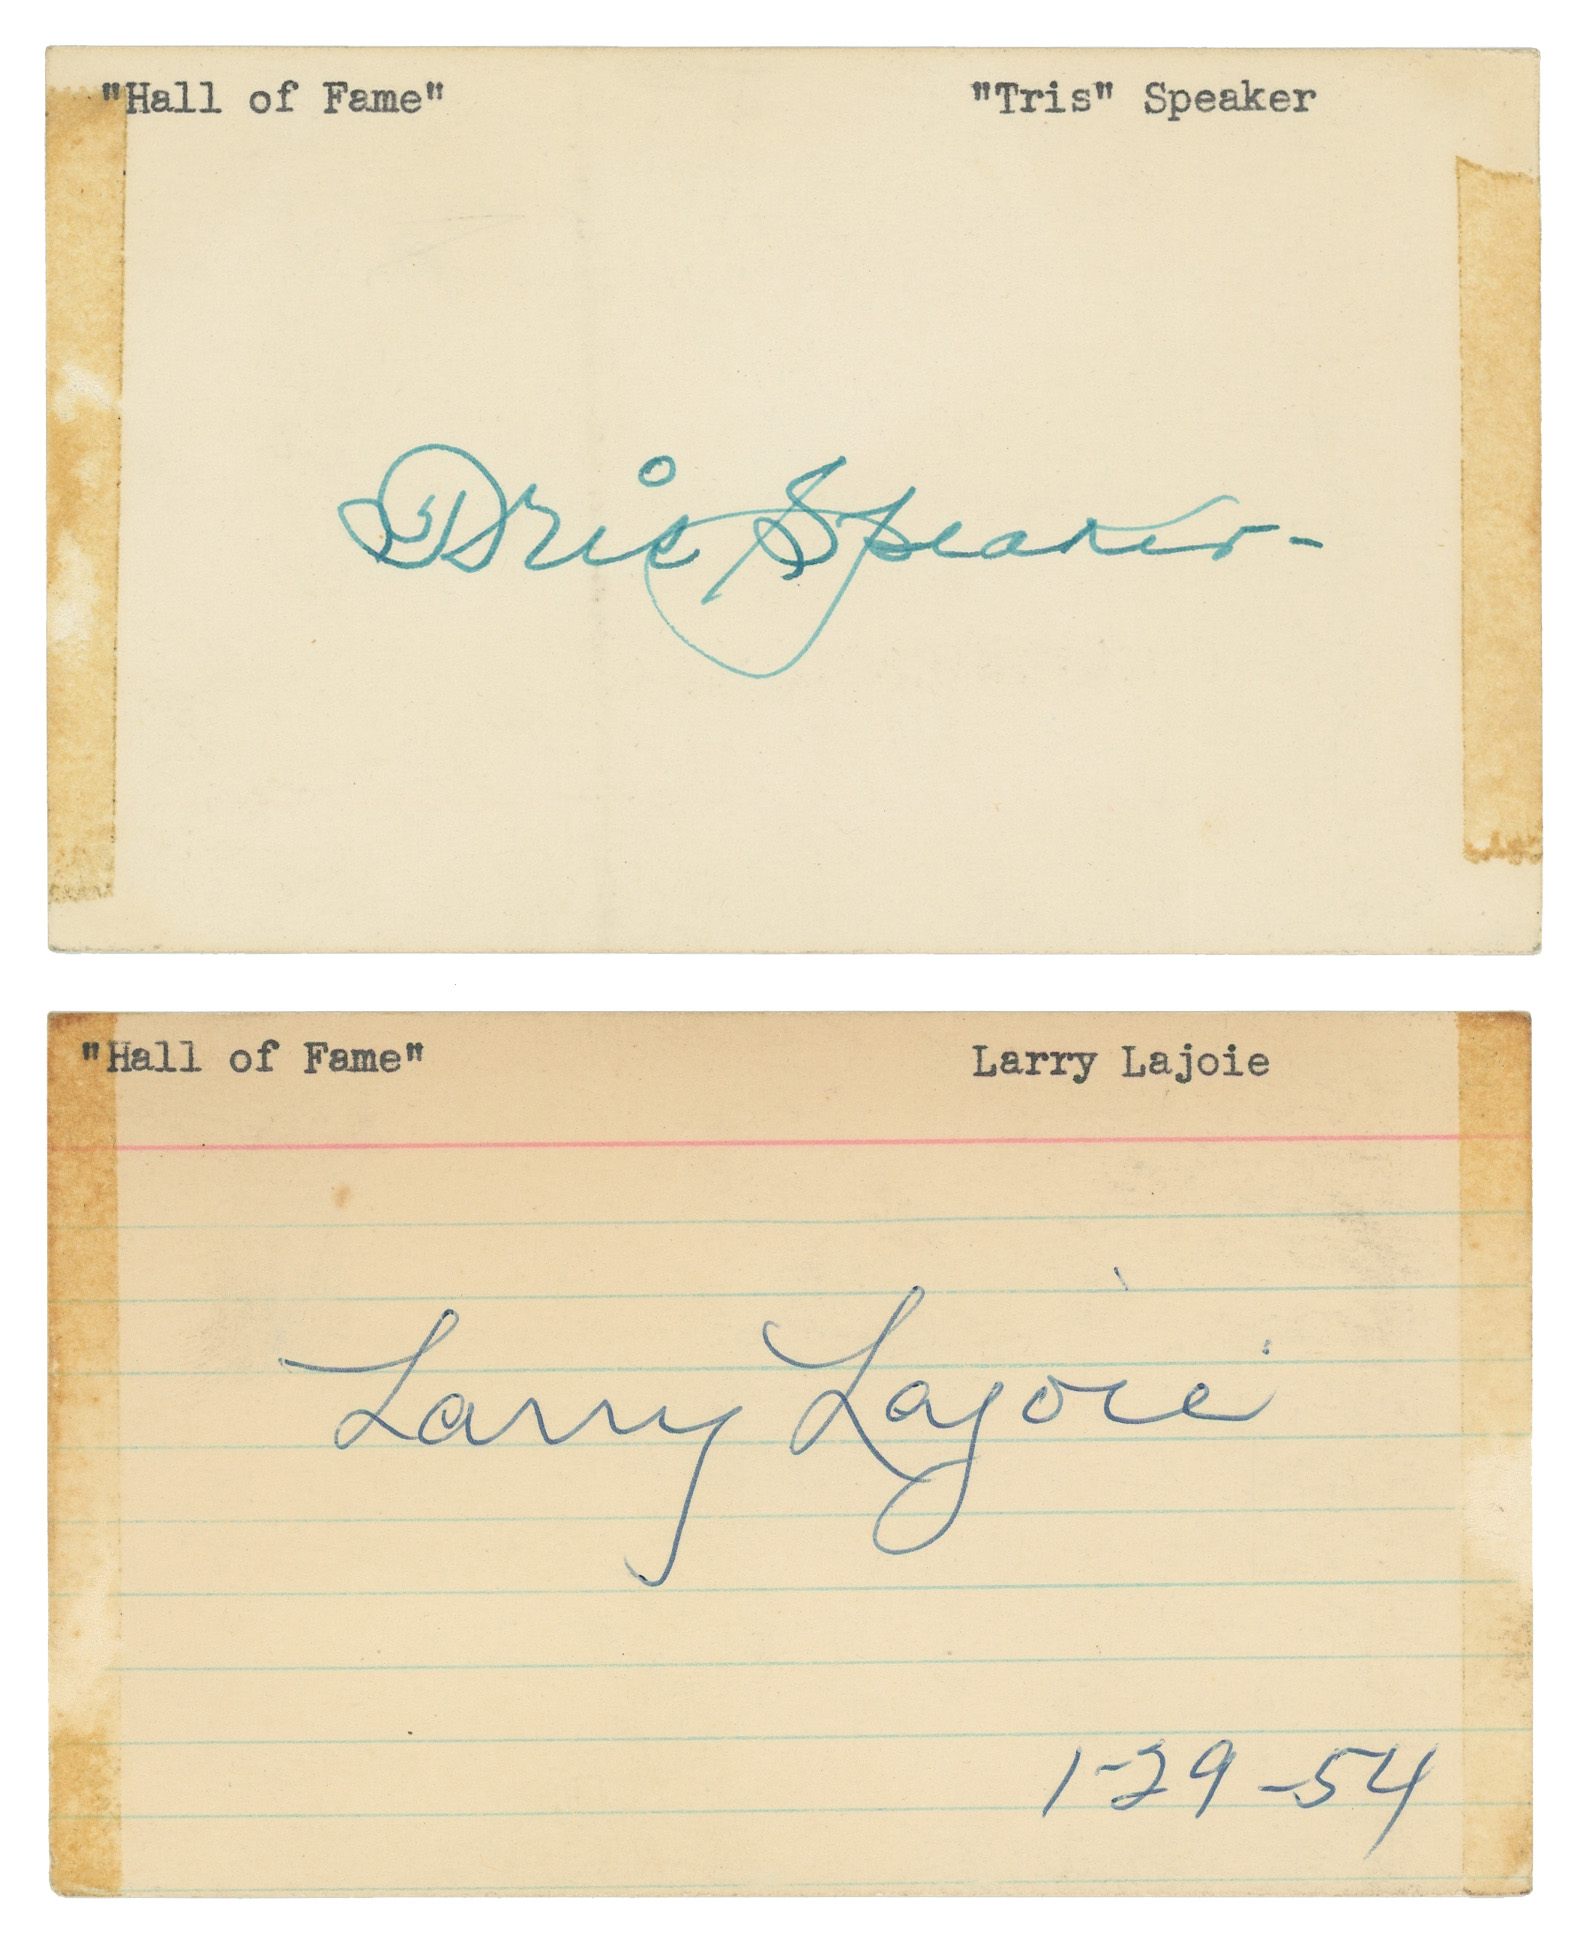 "Hall of Fame" "Tris" Speaker
Tris Speaker-
"Hall of Fame" Larry Lajoie
Larry Lajoie
1-29-54